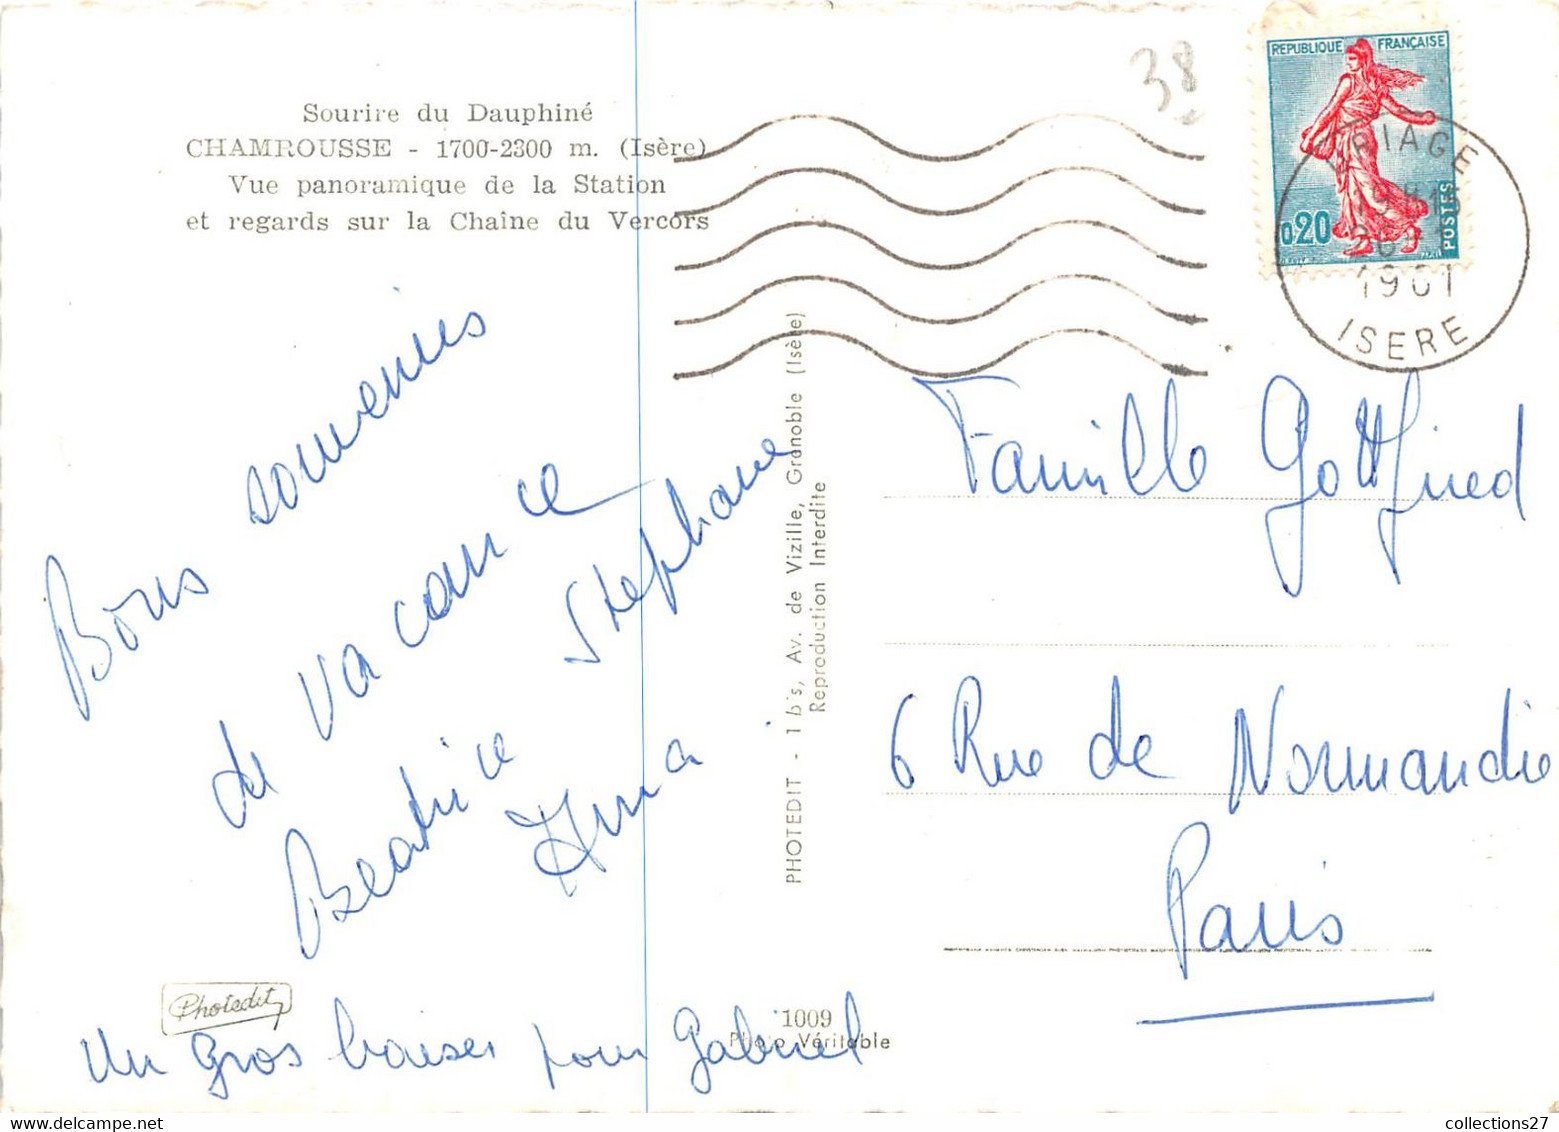 Sourire du Dauphiné
CHAMROUSSE - 1700-2300 m. (Isère)
Vue panoramique de la Station
et regards sur la Chaîne du Vercors
38
REPUBLIQUE FRANÇAISE
0,20
POSTES
URIAGE
1961
ISERE
Bons souvenirs
de vacance
Stephane
Beatrice
Anna
Un Gros baiser pour Gabriel
Photedit
PHOTEDIT - 1 bis, Av. de Vizille, Grenoble (Isère)
Reproduction Interdite
1009
Photo Véritable
Famille Gottfried
6 Rue de Normandie
Paris
collections27